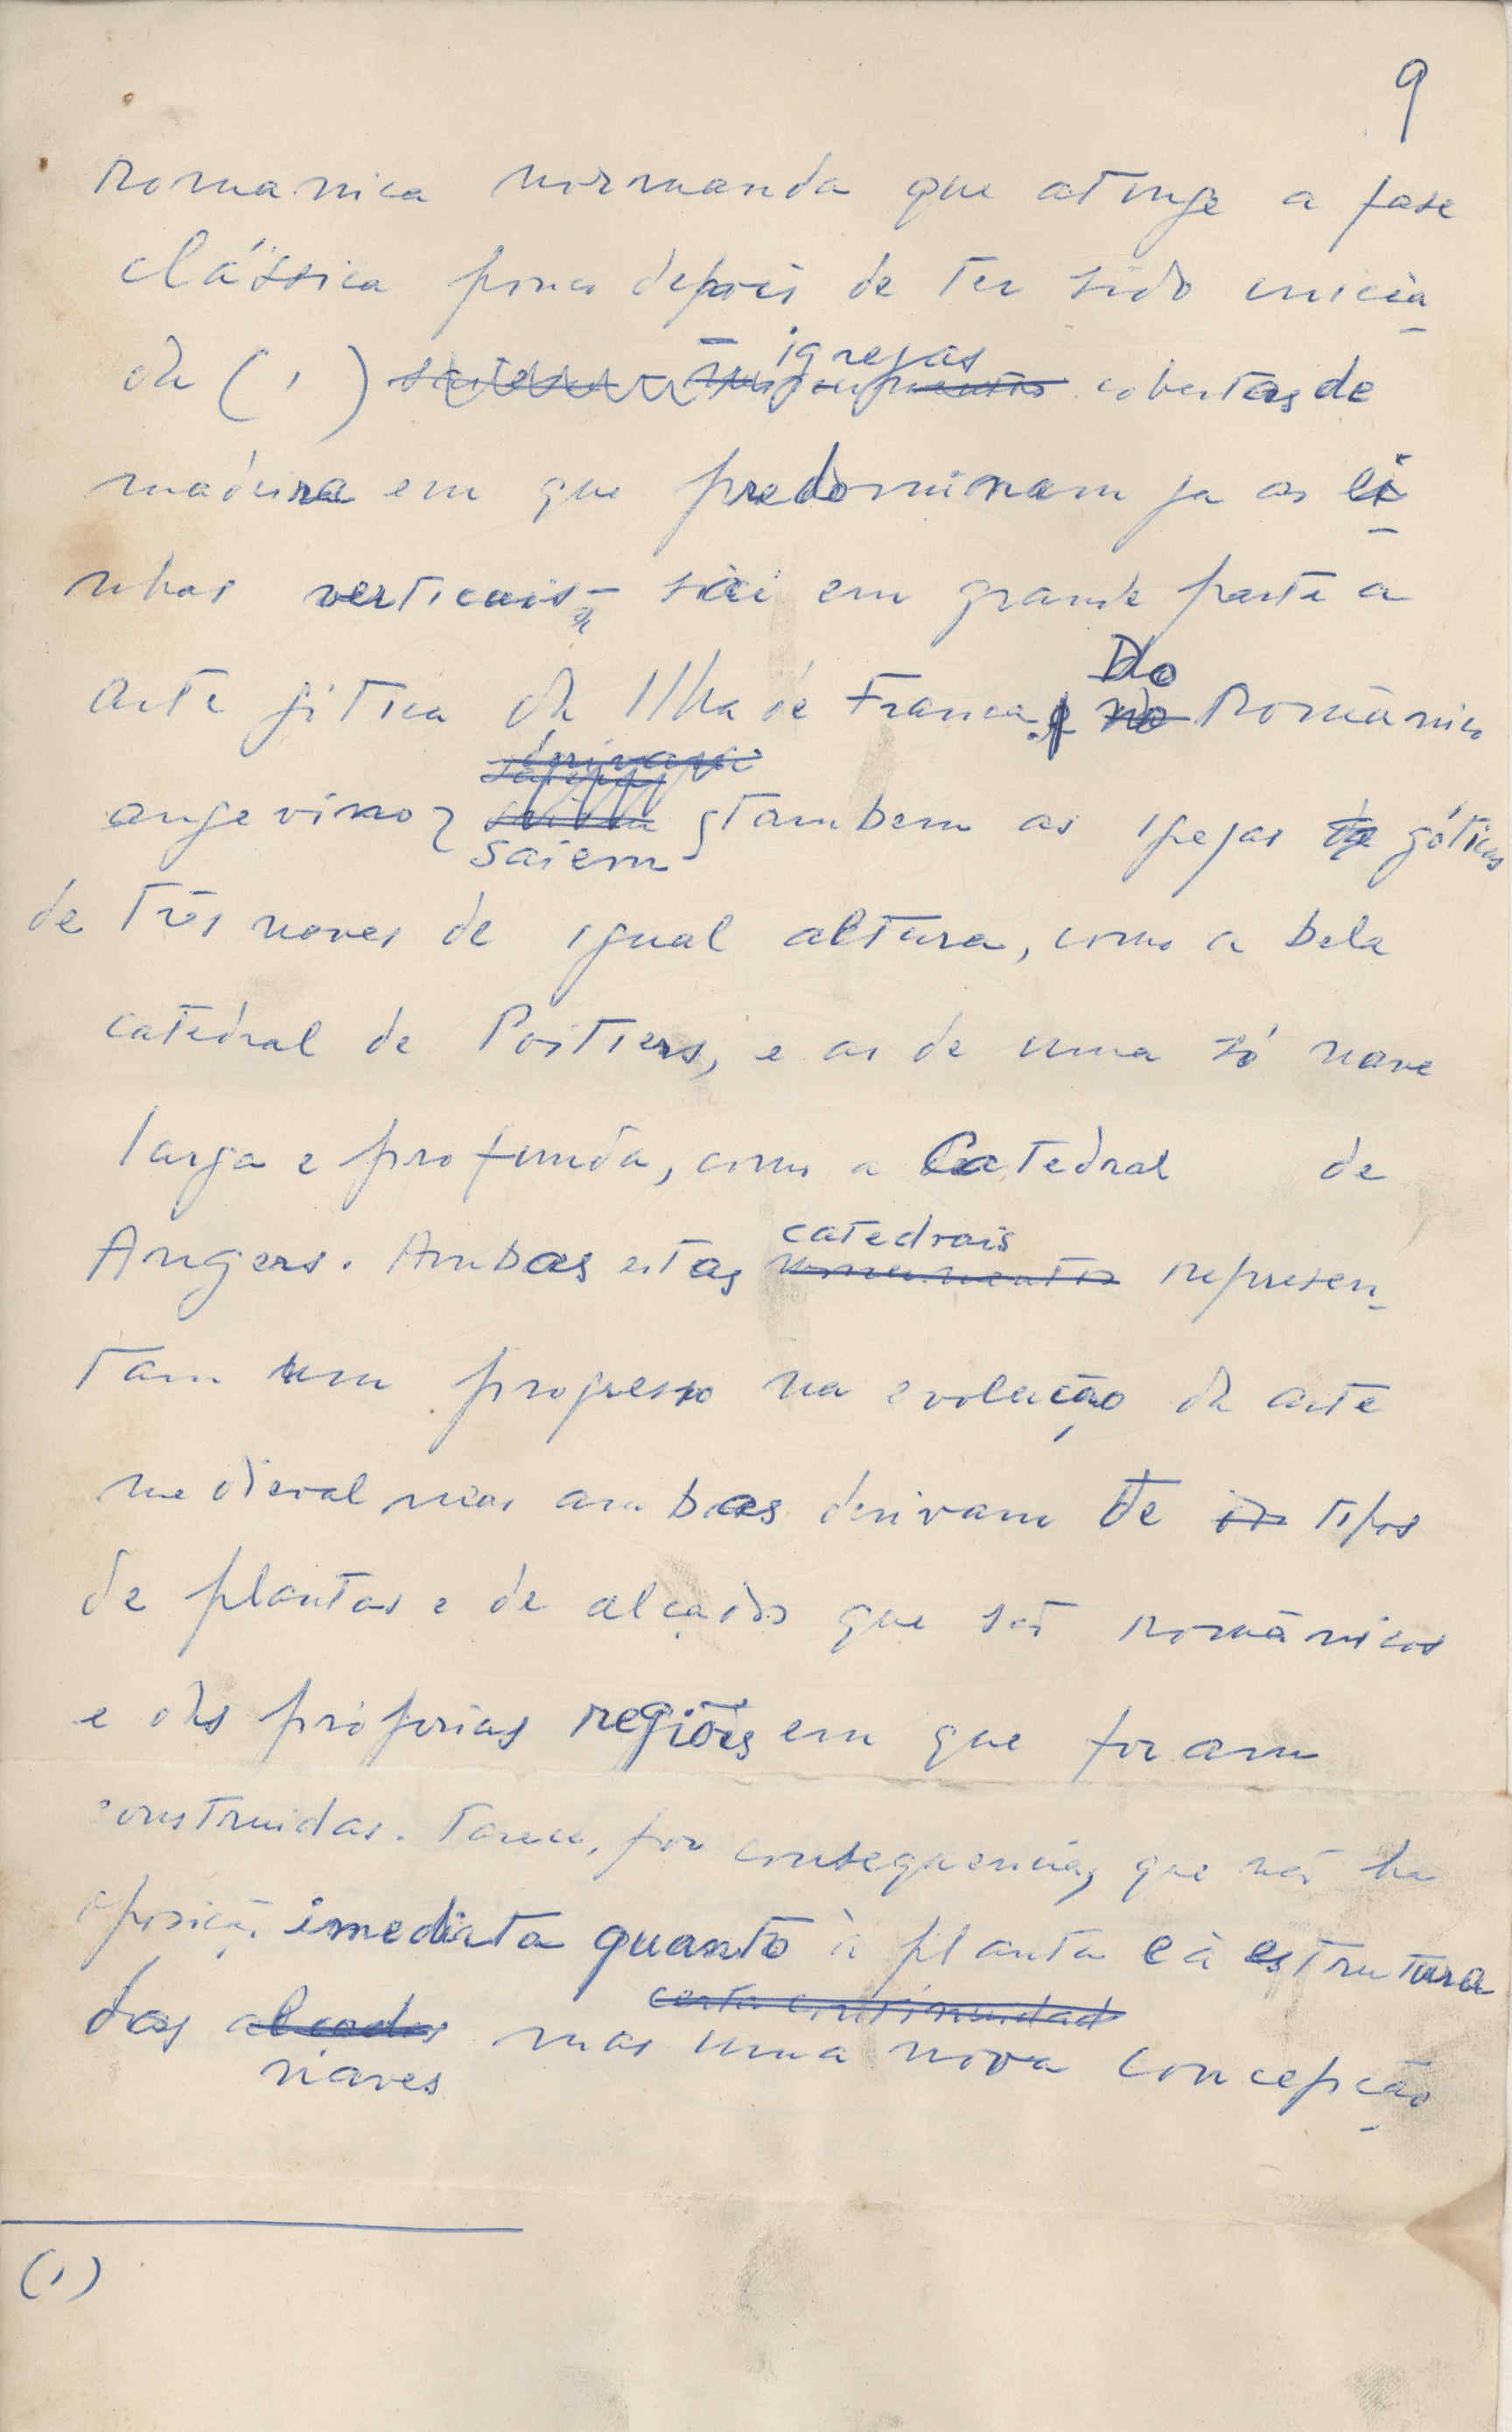 9
romanica normanda que atinge a fase
clássica pouco depois de ter sido inicia
da (1) — igrejas cobertas de
madeira em que predominam ja as li
nhas verticais — sai em grande parte a
arte gótica da Ilha de França. Do Românico
angevino saiem tambem as igrejas góticas
de três naves de igual altura, como a bela
catedral de Poitiers, e as de uma só nave
larga e profunda, como a Catedral de
Angers. Ambas estas catedrais represen
tam um progresso na evolução da arte
medieval mas ambas derivam de tipos
de plantas e de alçados que são românicos
e das próprias regiões em que foram
construidas. Parece, por consequencia, que não ha
oposição imediata quanto à planta e à estrutura
das naves mas uma nova concepção
(1)